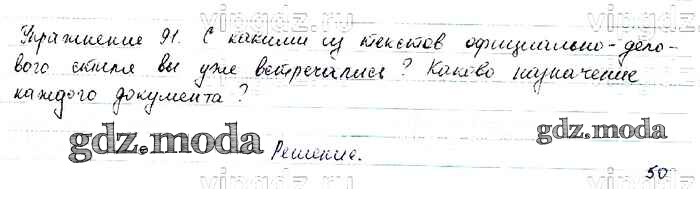 vipgdz.ru
Упражнение 91. С какими из текстов официально-дело-
вого стиля вы уже встречались? Каково назначение
каждого документа?
gdz.moda
gdz.moda
Решение.
50
vipgdz.ru
vipgdz.ru